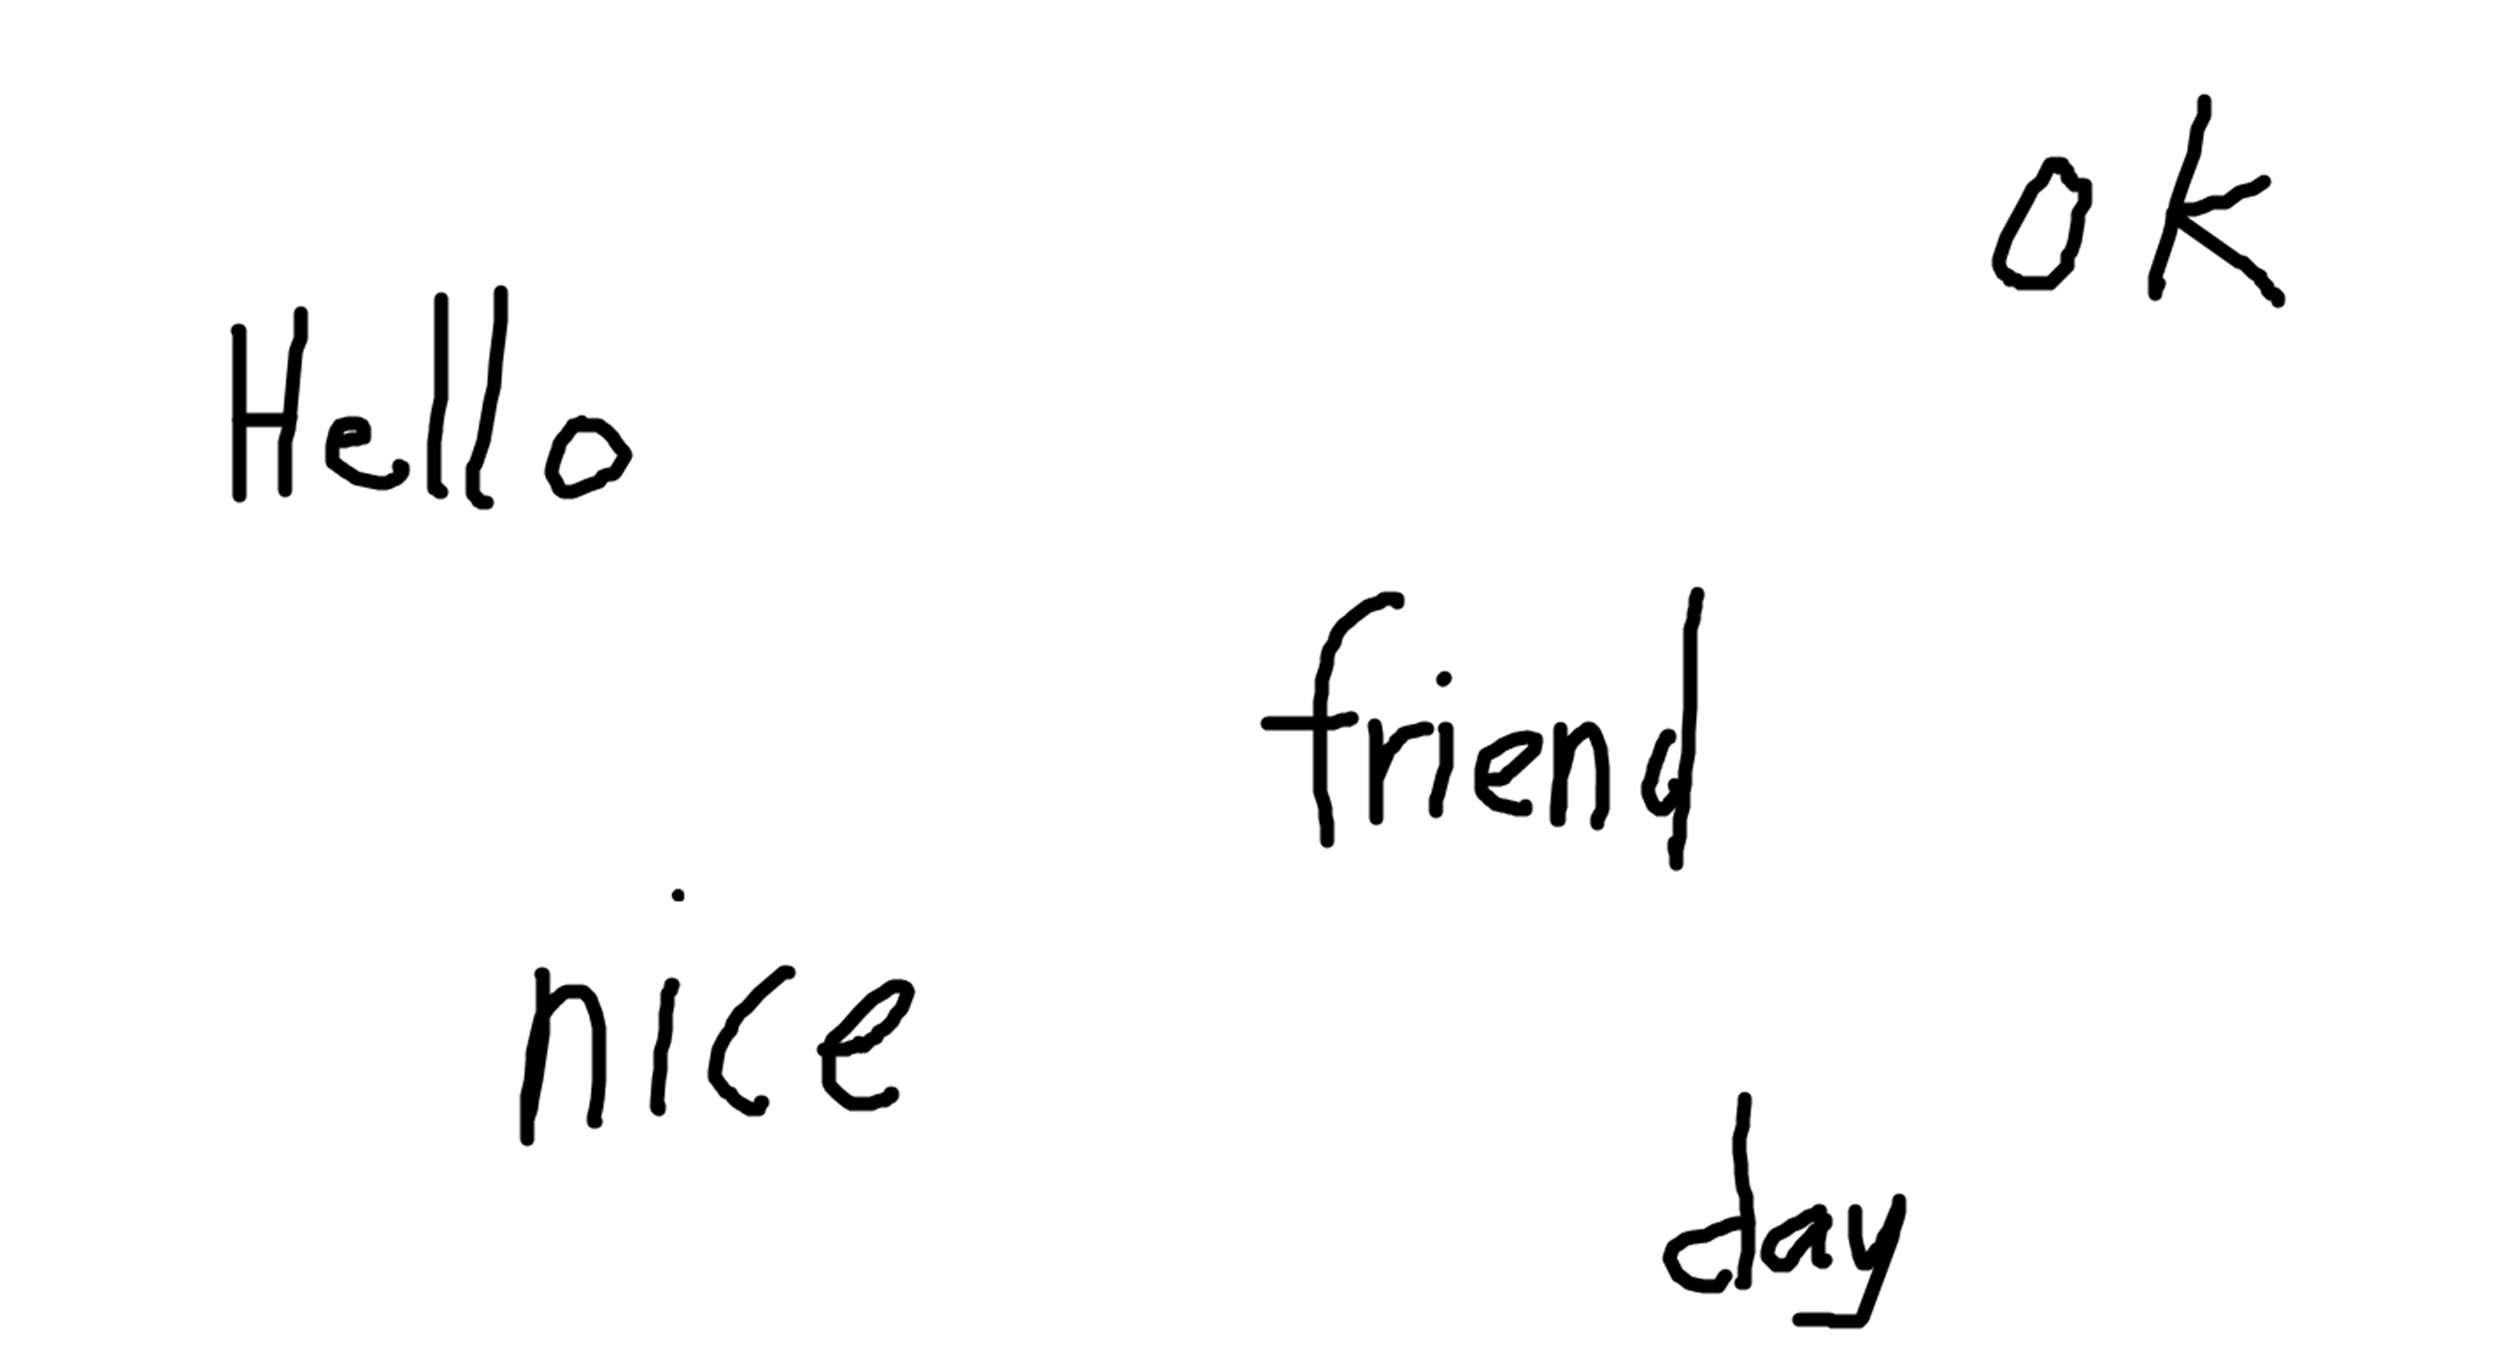 ok
Hello
friend
nice
day